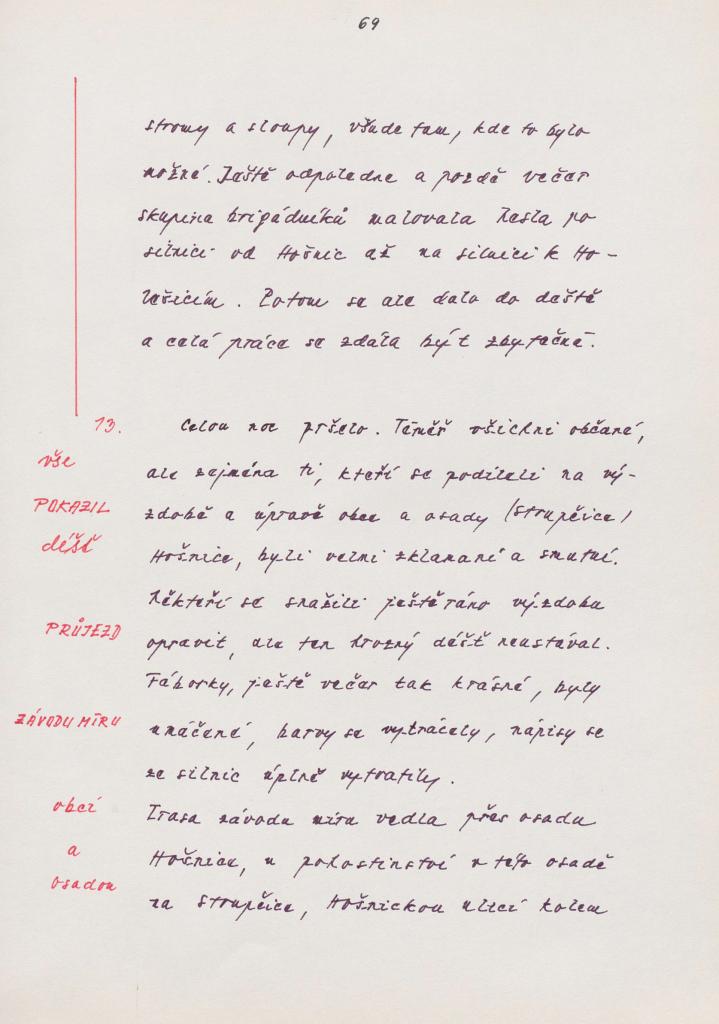 69
stromy a sloupy, všude tam, kde to bylo
možné. Ještě odpoledne a pozdě večer
skupina brigádníků malovala hesla po
silnici od Hošnic až na silnici k Ho-
lešicím. Potom se ale dalo do deště
a celá práce se zdála být zbytečné.
13. Celou noc pršelo. Téměř všichni občané,
vše
ale zejména ti, kteří se podíleli na vý-
POKAZIL
zdobě a úpravě obce a osady (Stoupčice)
déšť
Hošnice, byli velmi zklamaní a smutní.
Někteří se snažili ještě ráno výzdobu
PRŮJEZD
opravit, ale ten hrozný déšť neustával.
Fáborky, ještě večer tak krásné, byly
ZÁVODU MÍRU
umáčené, barvy se vytrácely, nápisy se
ze silnic úplně vytratily.
obcí
Trasa závodu míru vedla přes osadu
a
Hošnice, u pohostinství v této osadě
osadou
na Stoupčice, Hošnickou ulicí kolem